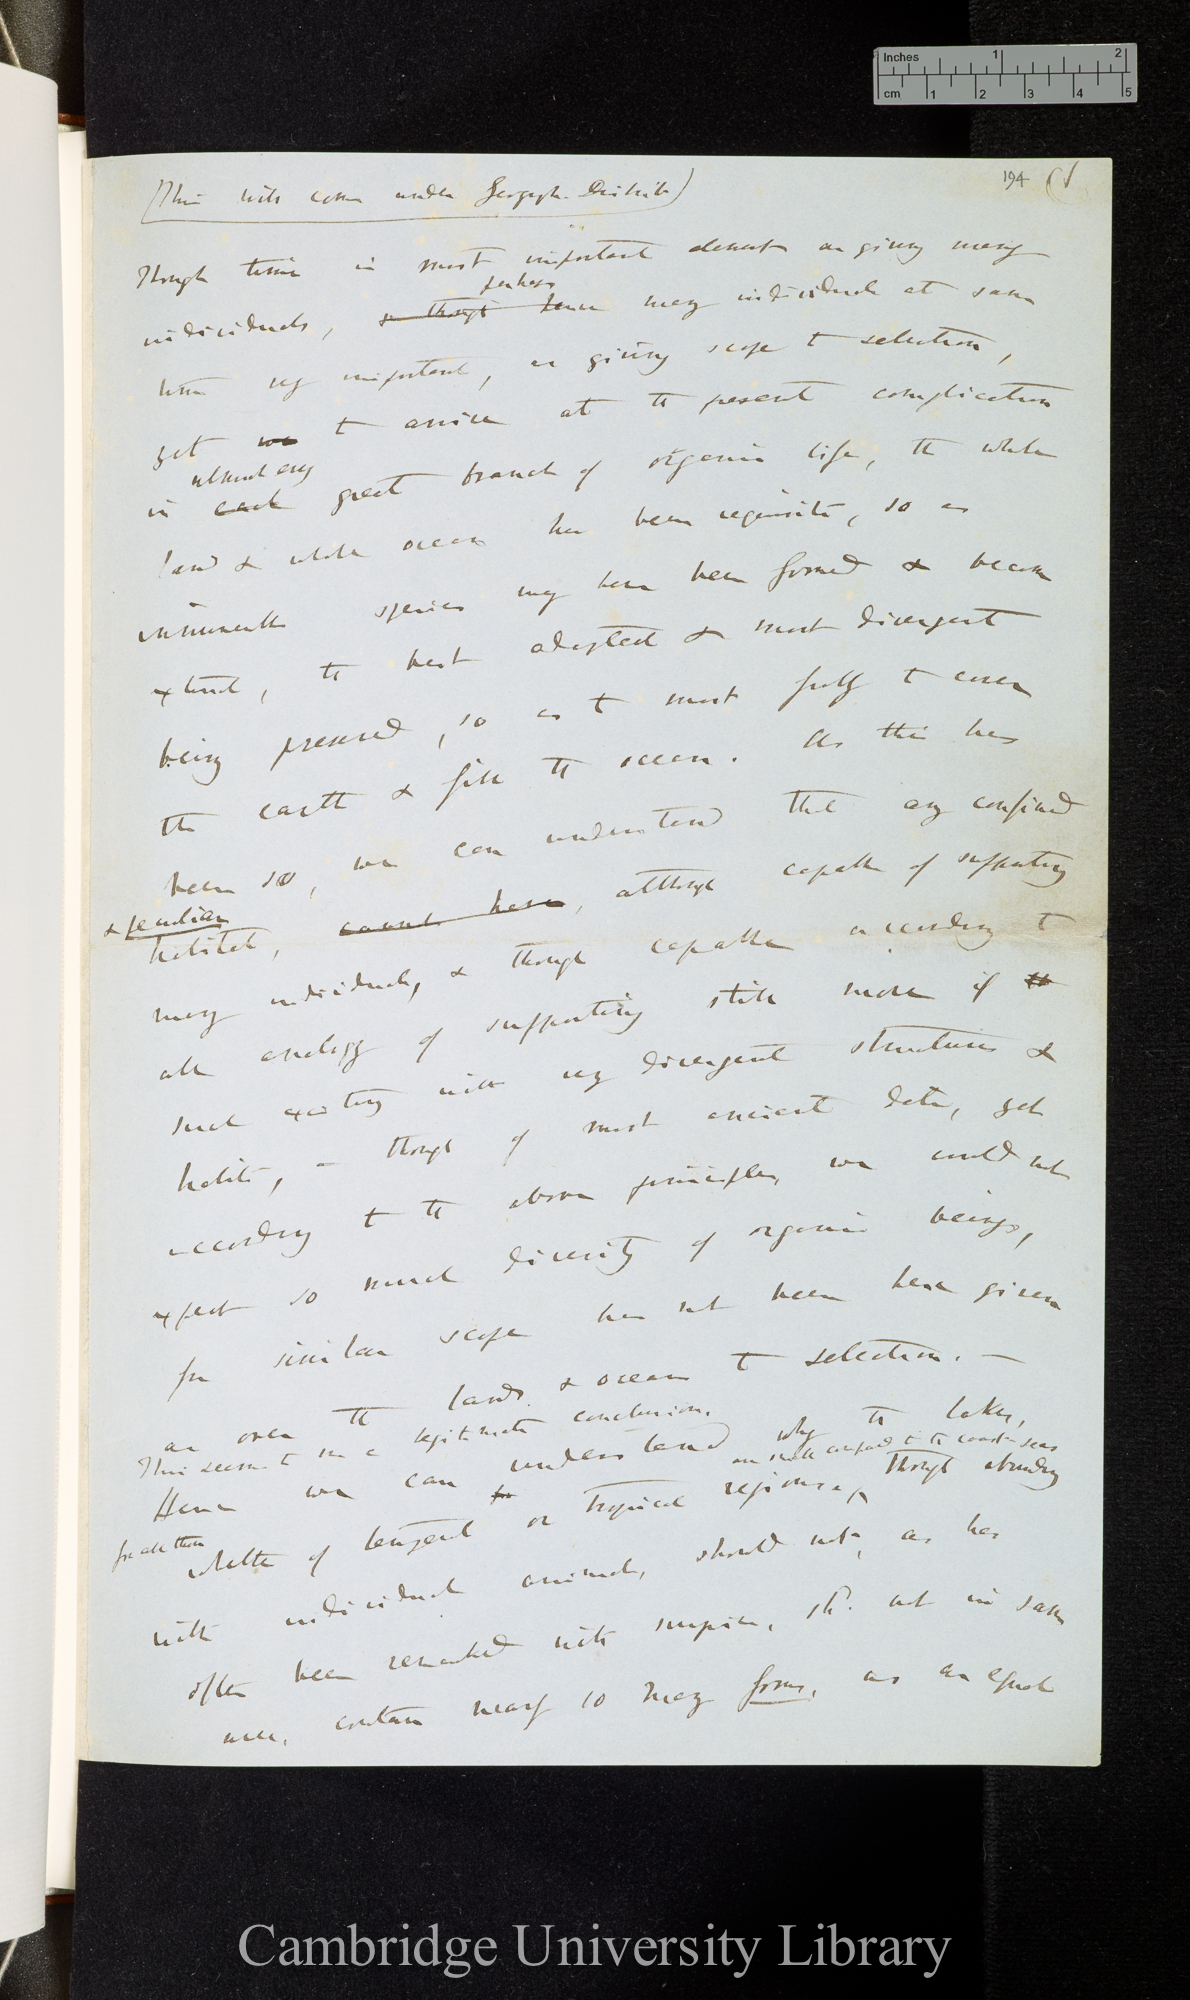 Inches 1 2
cm 1 2 3 4 5
194
(This will come under Geograph. Distrib)
Though time is most important element as giving many
perhaps
individuals, & though hence many individuals at same
time very important, as giving scope to selection,
yet we to arrive at the present complication
almost any
in each great branch of organic life, the whole
land & whole ocean has been requisite, so as
innumerable species may have been formed & become
extinct, the best adapted & most divergent
being preserved, so as to most fully to cover
the earth & fill the ocean. As this has
been so, we can understand that any confined
& peculiar
habitat, cannot have, although capable of supporting
many individuals, & though capable according to
all analogy of supporting still more if the
such existing with very divergent structures &
habits, — though of most ancient date, yet
according to the above principles, we could not
expect so much diversity of organic beings,
for similar scope has not been here given
as over the lands & ocean to selection. —
This seems to me a legitimate conclusion.
Hence we can understand why the lakes,
are small compared to the coasts seas
for all them
whether of temperate or tropical regions, though abounding
with individual animals, should not, as has
often been remarked with surprise, shd. not in same
area, contain nearly so many forms, as an equal
Cambridge University Library